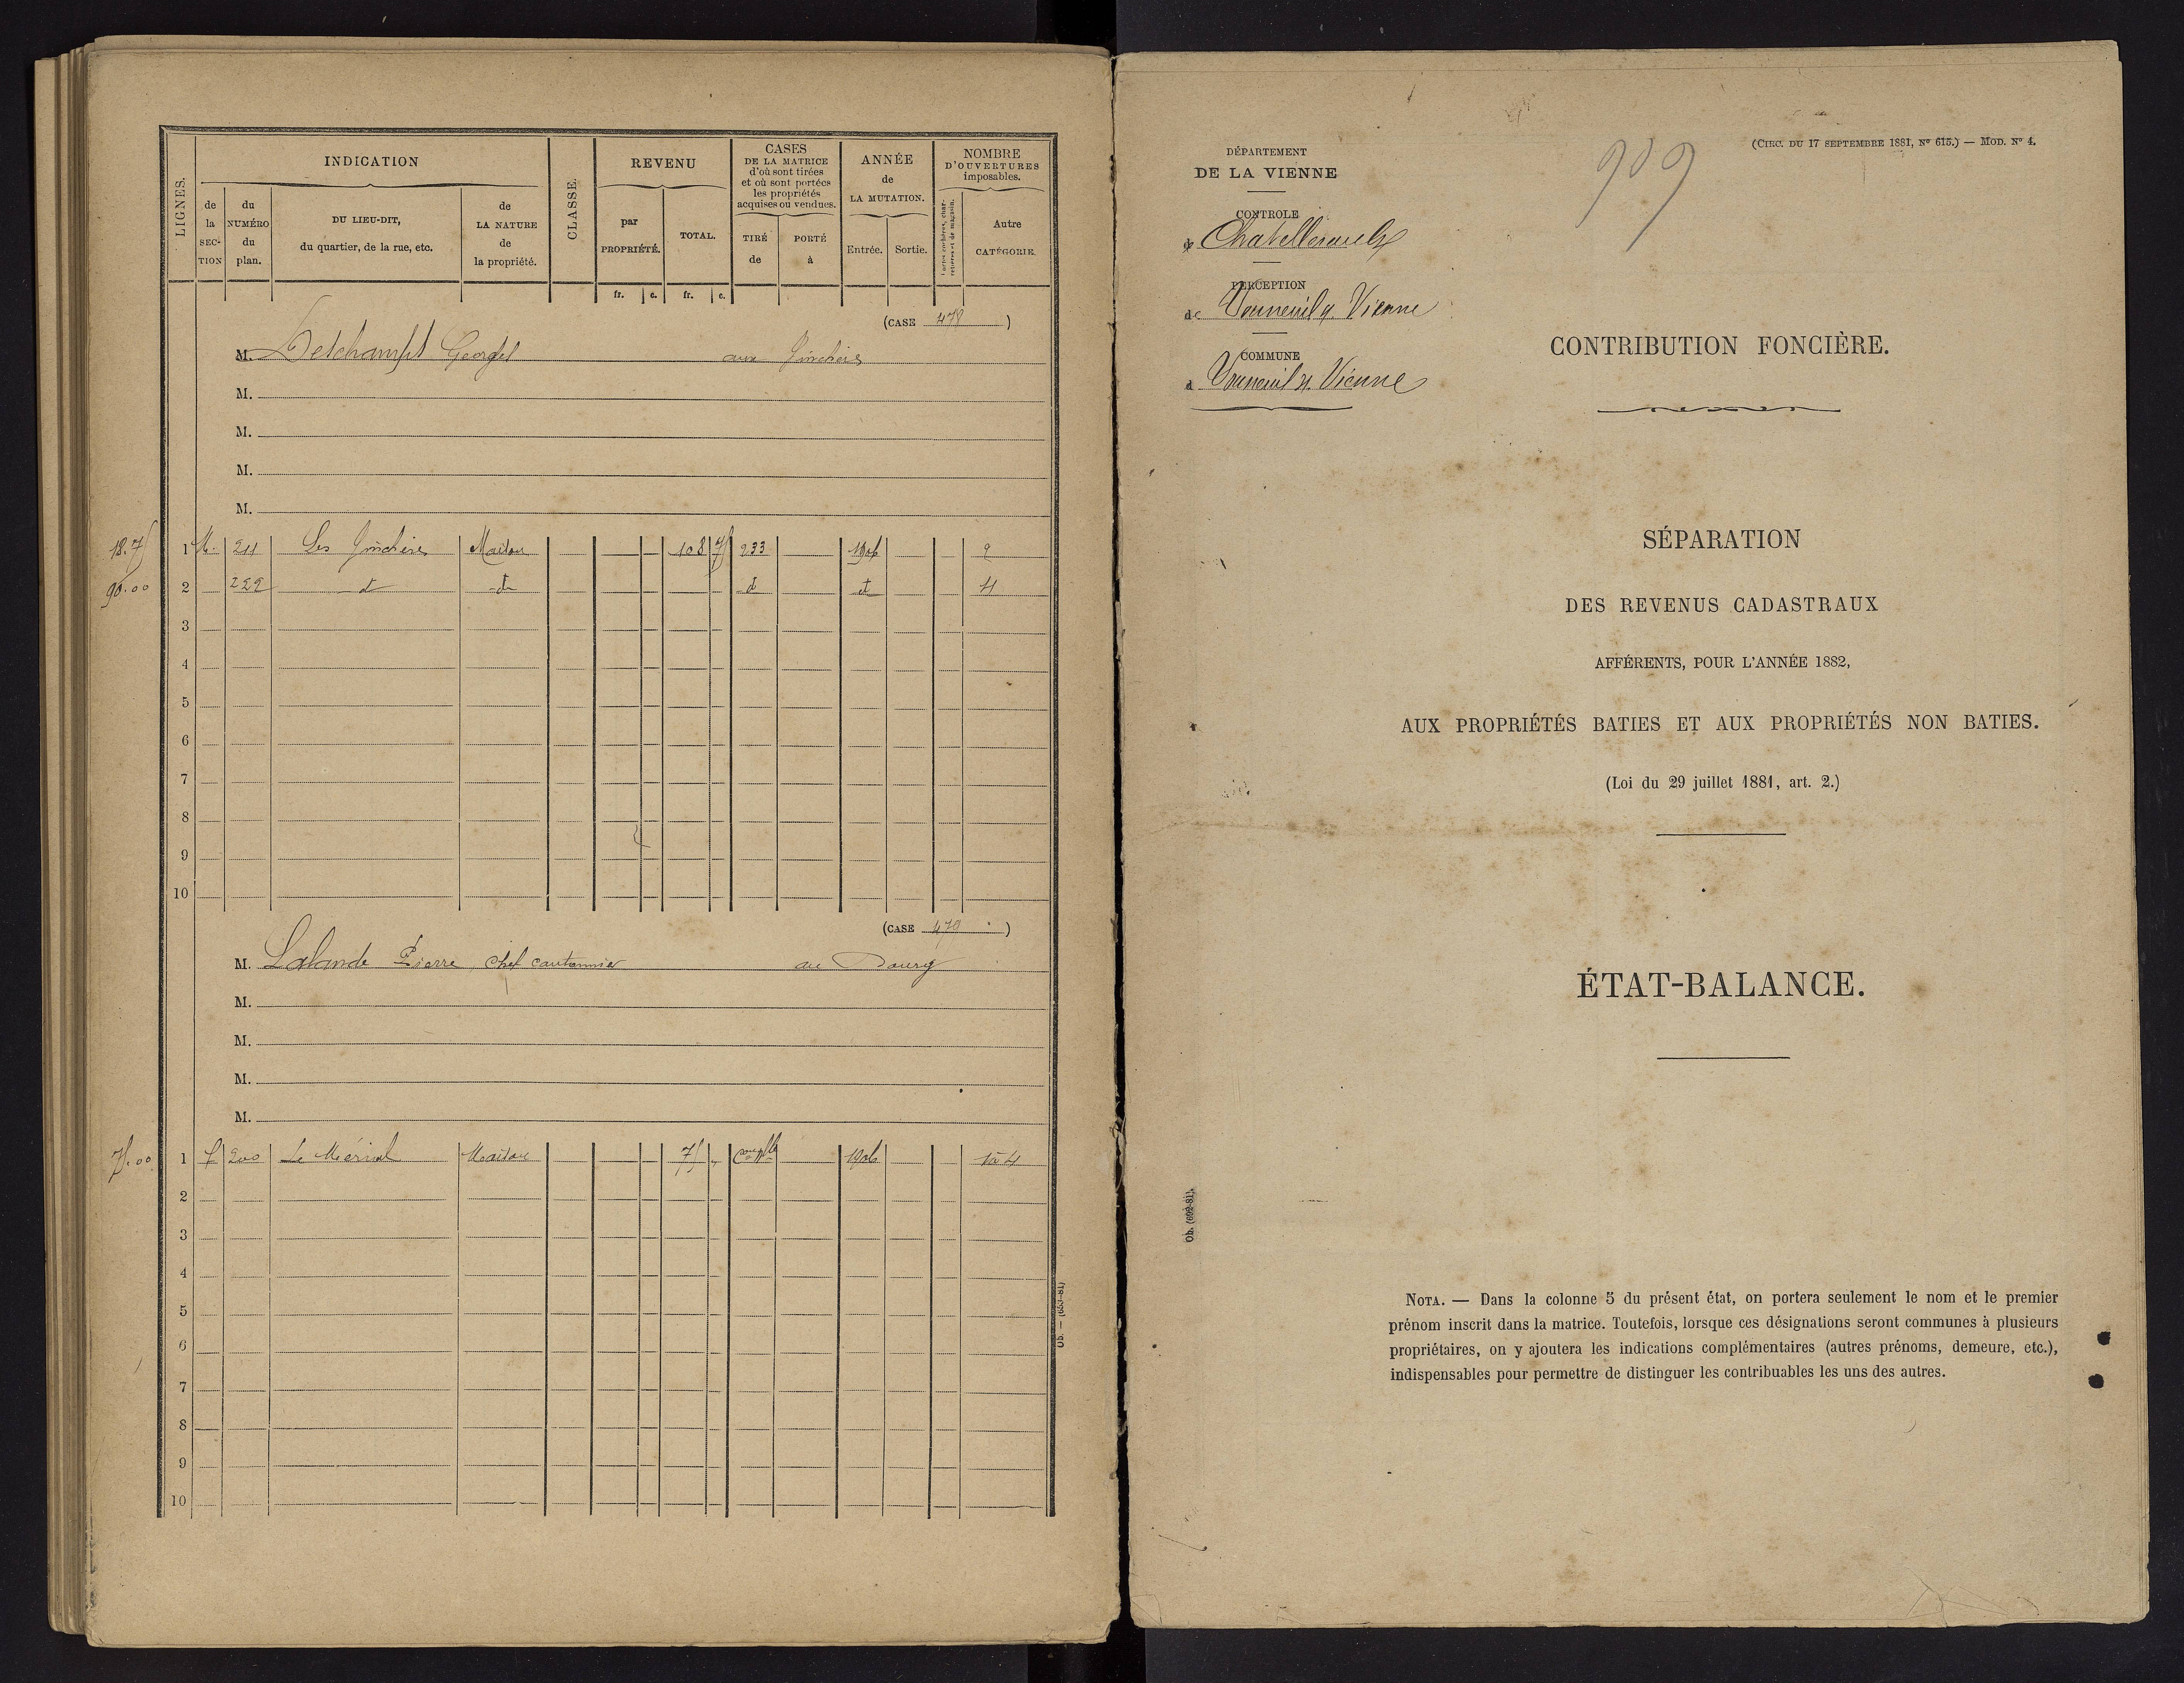 LIGNES.
INDICATION
de la SECTION
du NUMÉRO du plan.
DU LIEU-DIT, du quartier, de la rue, etc.
de LA NATURE de la propriété.
CLASSE.
REVENU
par PROPRIÉTÉ.
TOTAL.
CASES DE LA MATRICE d'où sont tirées et où sont portées les propriétés acquises ou vendues.
TIRÉ de
PORTÉ à
ANNÉE de LA MUTATION.
Entrée.
Sortie.
NOMBRE D'OUVERTURES imposables.
Autre CATÉGORIE.
fr. c. fr. c.
(CASE 478)
M. Deschamps Georges
M.
M.
M.
M.
18.75 1 211 Les Maison 108 75 233 1906 2
90.00 2 222 d d d d 4
3
4
5
6
7
8
9
10
(CASE 479)
M. Lalande Pierre chef cantonnier au Bourg
M.
M.
M.
M.
75.00 1 200 Le Maison 75 1906 4
2
3
4
5
6
7
8
9
10
(CIRC. DU 17 SEPTEMBRE 1881, N° 615.) — MOD. N° 4.
909
DÉPARTEMENT
DE LA VIENNE
CONTROLE
de Chatellerault
PERCEPTION
de Vouneuil s. Vienne
COMMUNE
d Vouneuil s. Vienne
CONTRIBUTION FONCIÈRE.
SÉPARATION
DES REVENUS CADASTRAUX
AFFÉRENTS, POUR L'ANNÉE 1882,
AUX PROPRIÉTÉS BATIES ET AUX PROPRIÉTÉS NON BATIES.
(Loi du 29 juillet 1881, art. 2.)
ÉTAT-BALANCE.
Ob. (692-81).
NOTA. — Dans la colonne 5 du présent état, on portera seulement le nom et le premier
prénom inscrit dans la matrice. Toutefois, lorsque ces désignations seront communes à plusieurs
propriétaires, on y ajoutera les indications complémentaires (autres prénoms, demeure, etc.),
indispensables pour permettre de distinguer les contribuables les uns des autres.